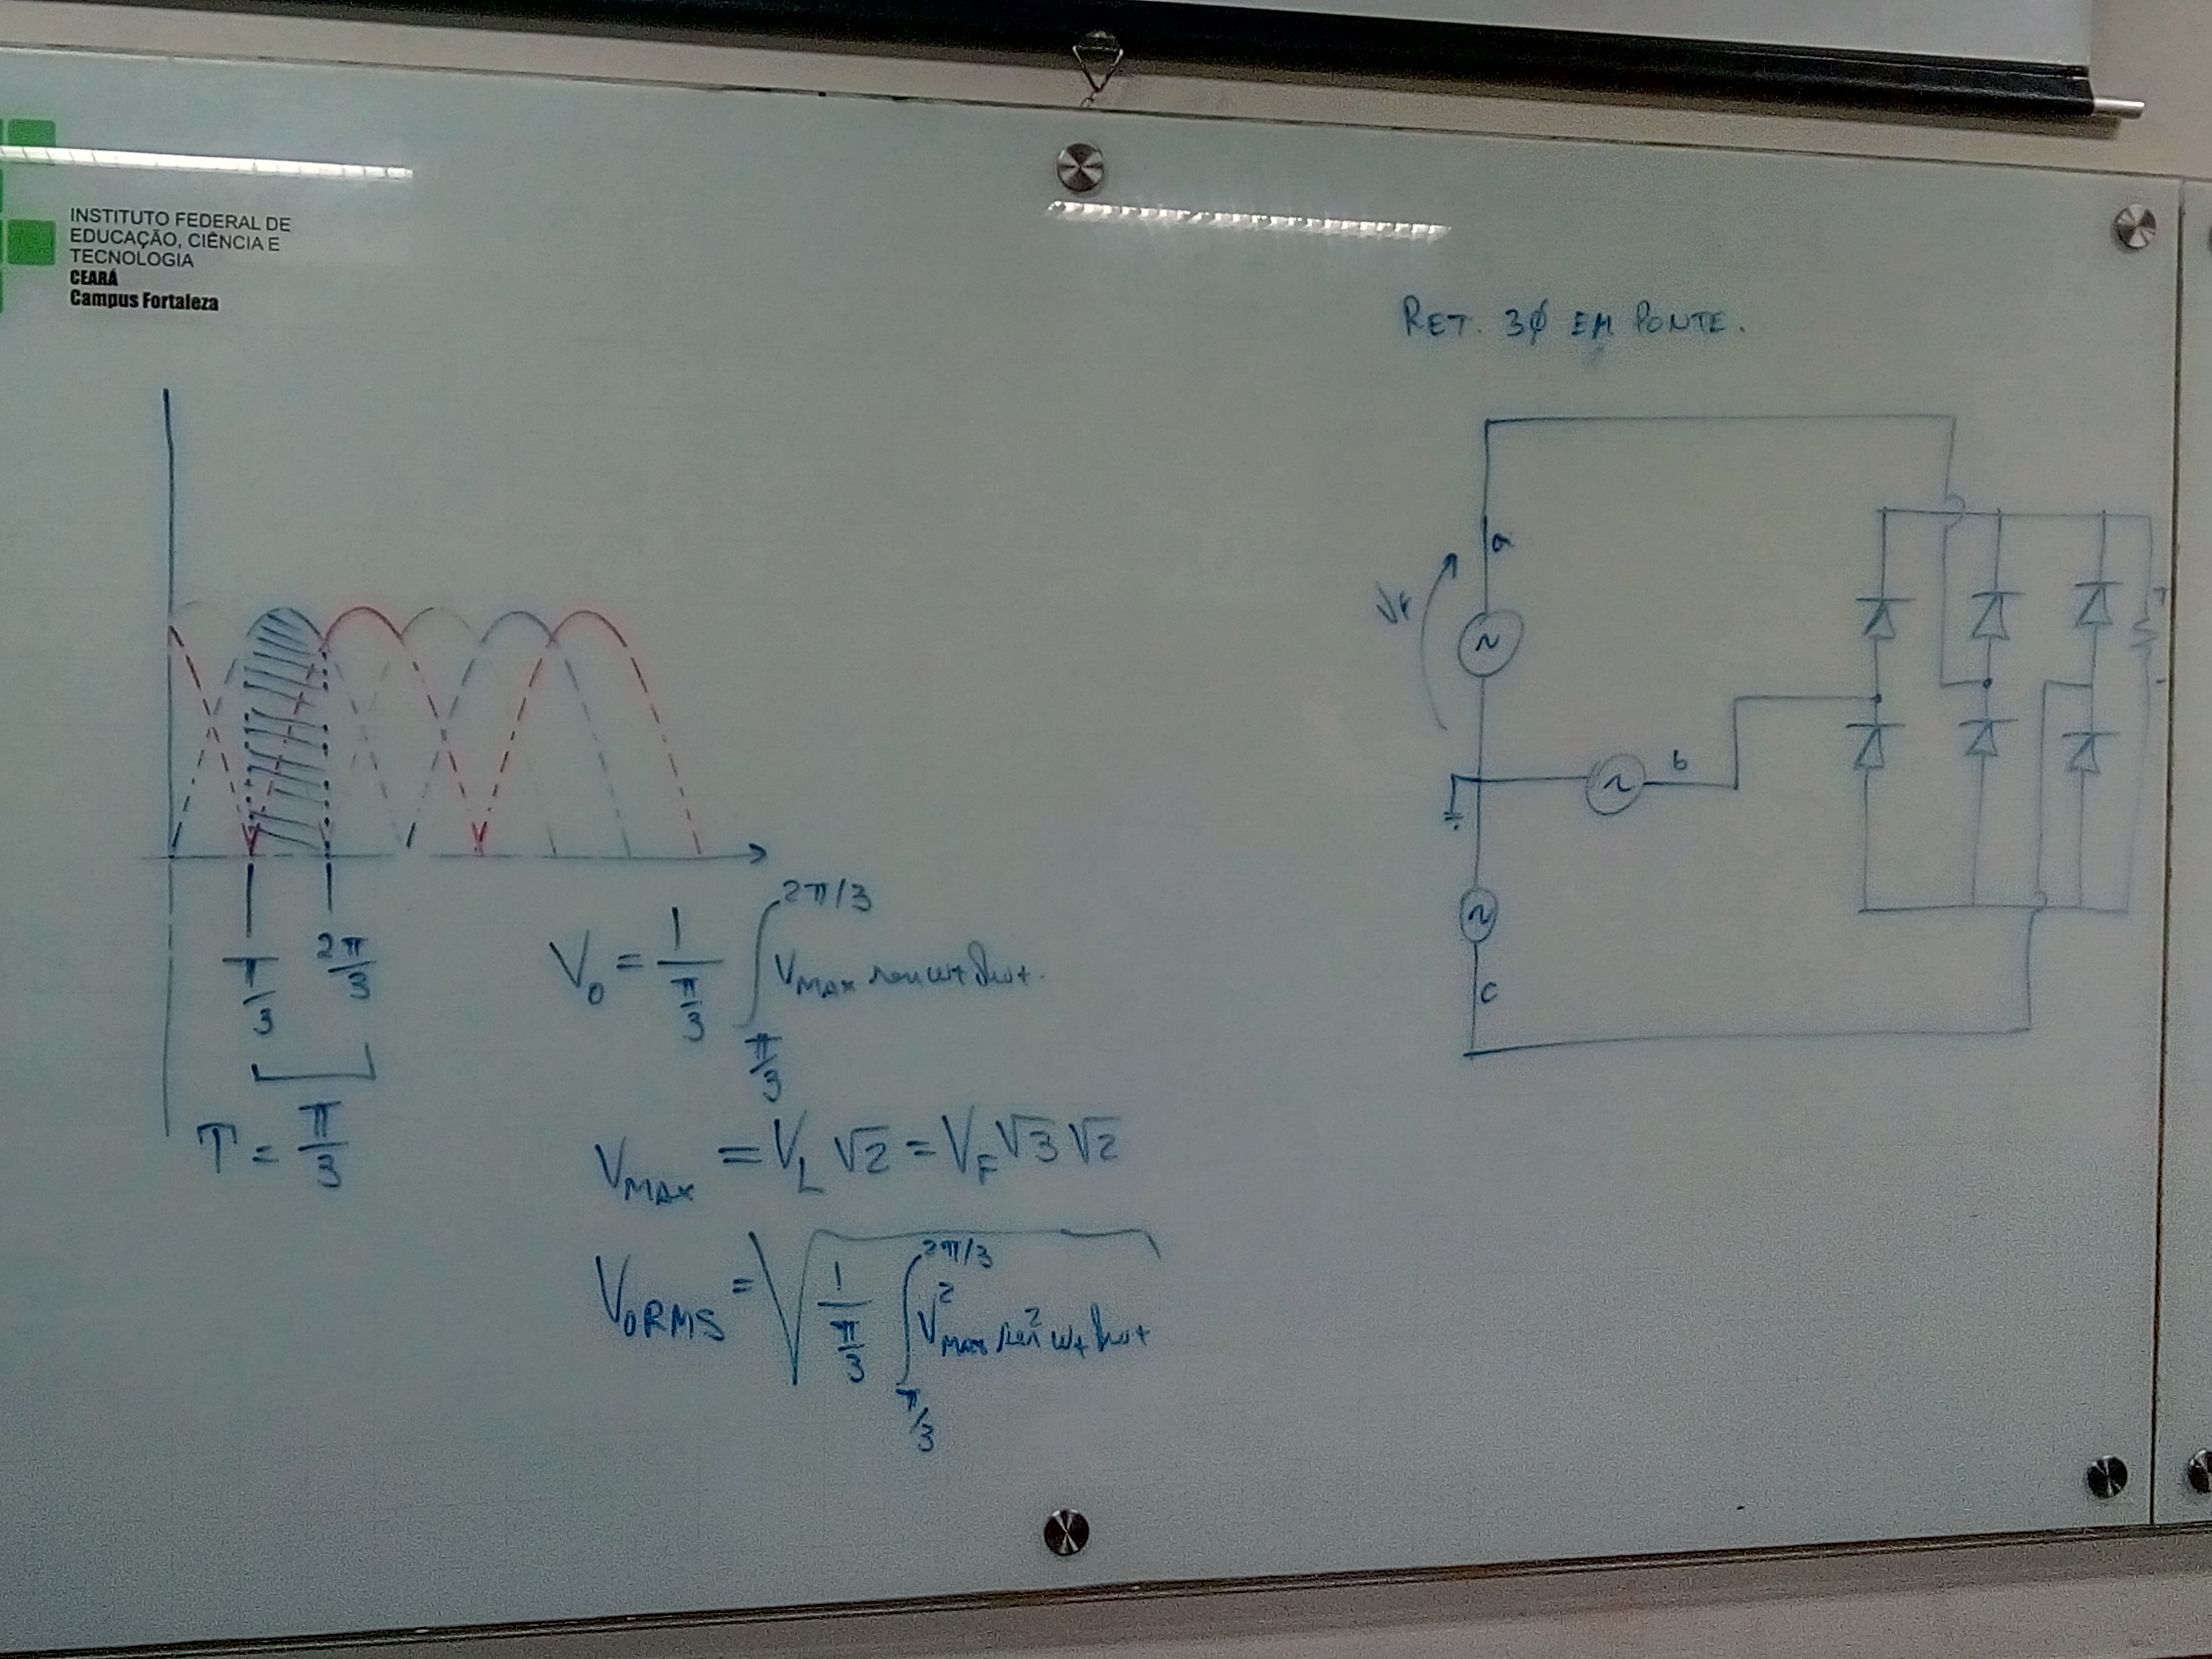 INSTITUTO FEDERAL DE
EDUCAÇÃO, CIÊNCIA E
TECNOLOGIA
CEARÁ
Campus Fortaleza
RET. 3φ EM PONTE.
a
VF
b
c
π/3
2π/3
T = π/3
V₀ = 1/(π/3) ∫_{π/3}^{2π/3} V_MAX sen ωt dωt.
V_MAX = V_L √2 = V_F √3 √2
V_0RMS = √(1/(π/3) ∫_{π/3}^{2π/3} V²_MAX sen² ωt dωt)